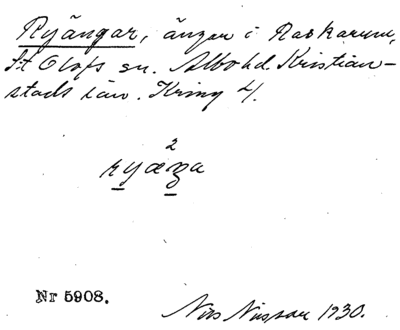 Ryängar, ängar i Raskarum,
S:t Olofs sn. Albo hd. Kristian-
stads län. Kring 4.
2
ryæŋa
Nr 5908.
Nils Nilsson 1930.